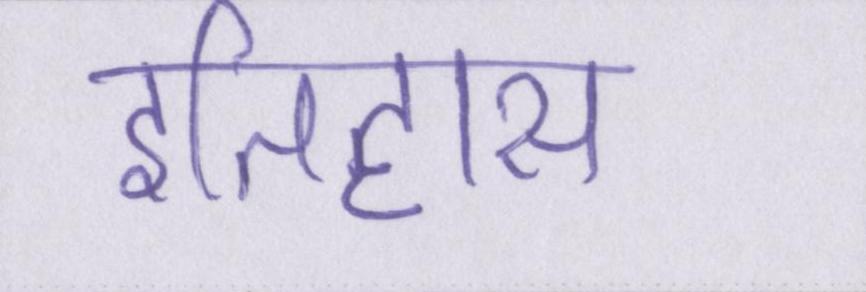 इतिहास